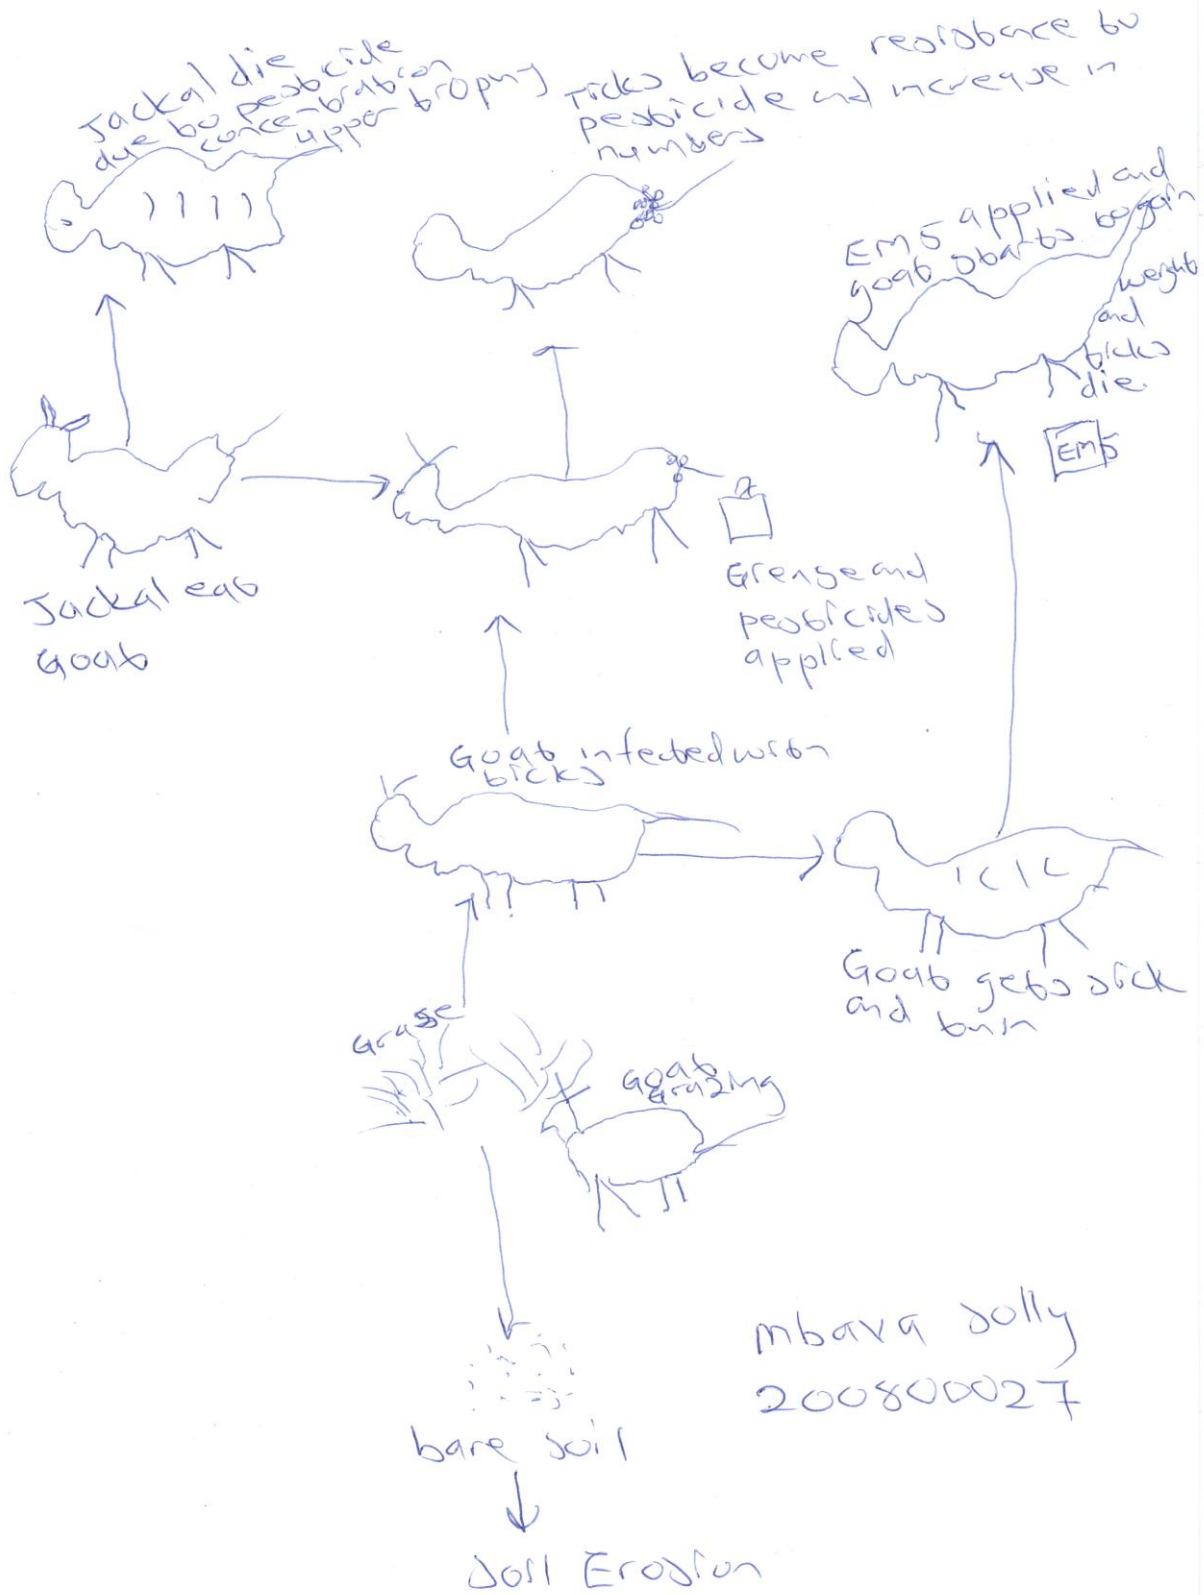 Jackal die
due to pesticide
concentration
upper trophy
Ticks become resistance to
pesticide and increase in
numbers
EM5 applied and
goat starts to gain
weight
and
ticks
die.
EM5
Jackal eat
Goat
Grease and
pesticides
applied
Goat infected with
ticks
Goat gets sick
and thin
Grasse
Goat
Grazing
bare soil
Soil Erosion
Mbava Jolly
200800027